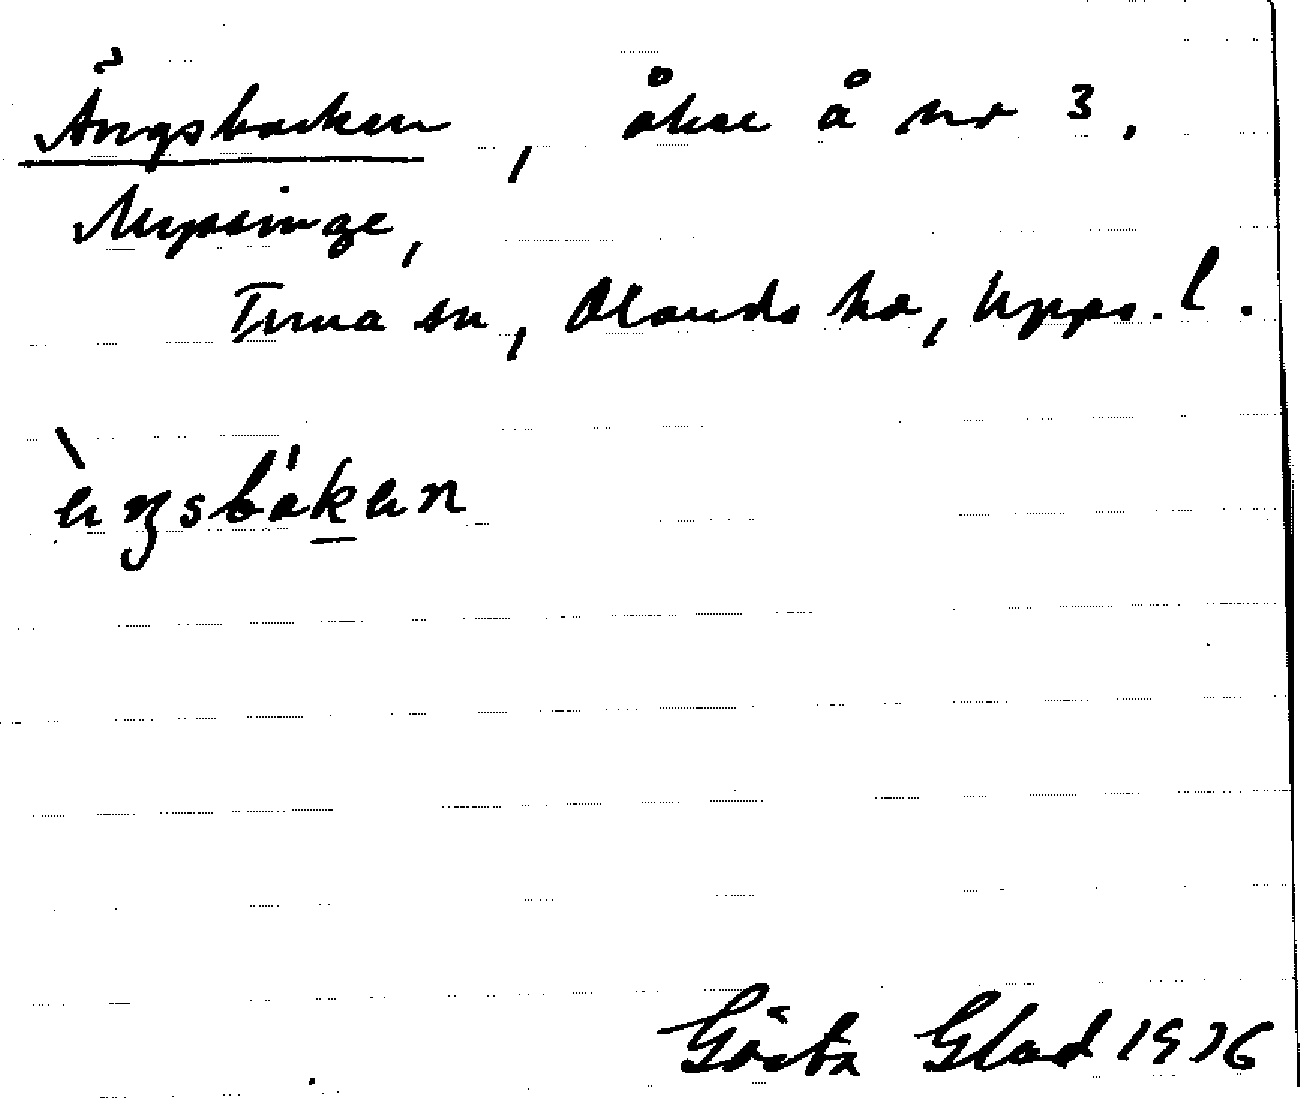 Ängsbacken, åker å nr 3.
Myssinge,
Tuna sn, Olands hd, Upps. l.
ängsbàkan
Gösta Glad 1936